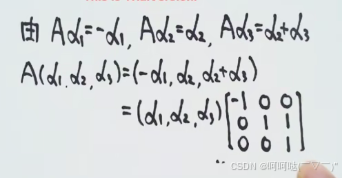 由 Aα₁=-α₁, Aα₂=α₂, Aα₃=α₂+α₃
A(α₁,α₂,α₃)=(-α₁,α₂,α₂+α₃)
=(α₁,α₂,α₃)[-1 0 0
0 1 1
0 0 1]